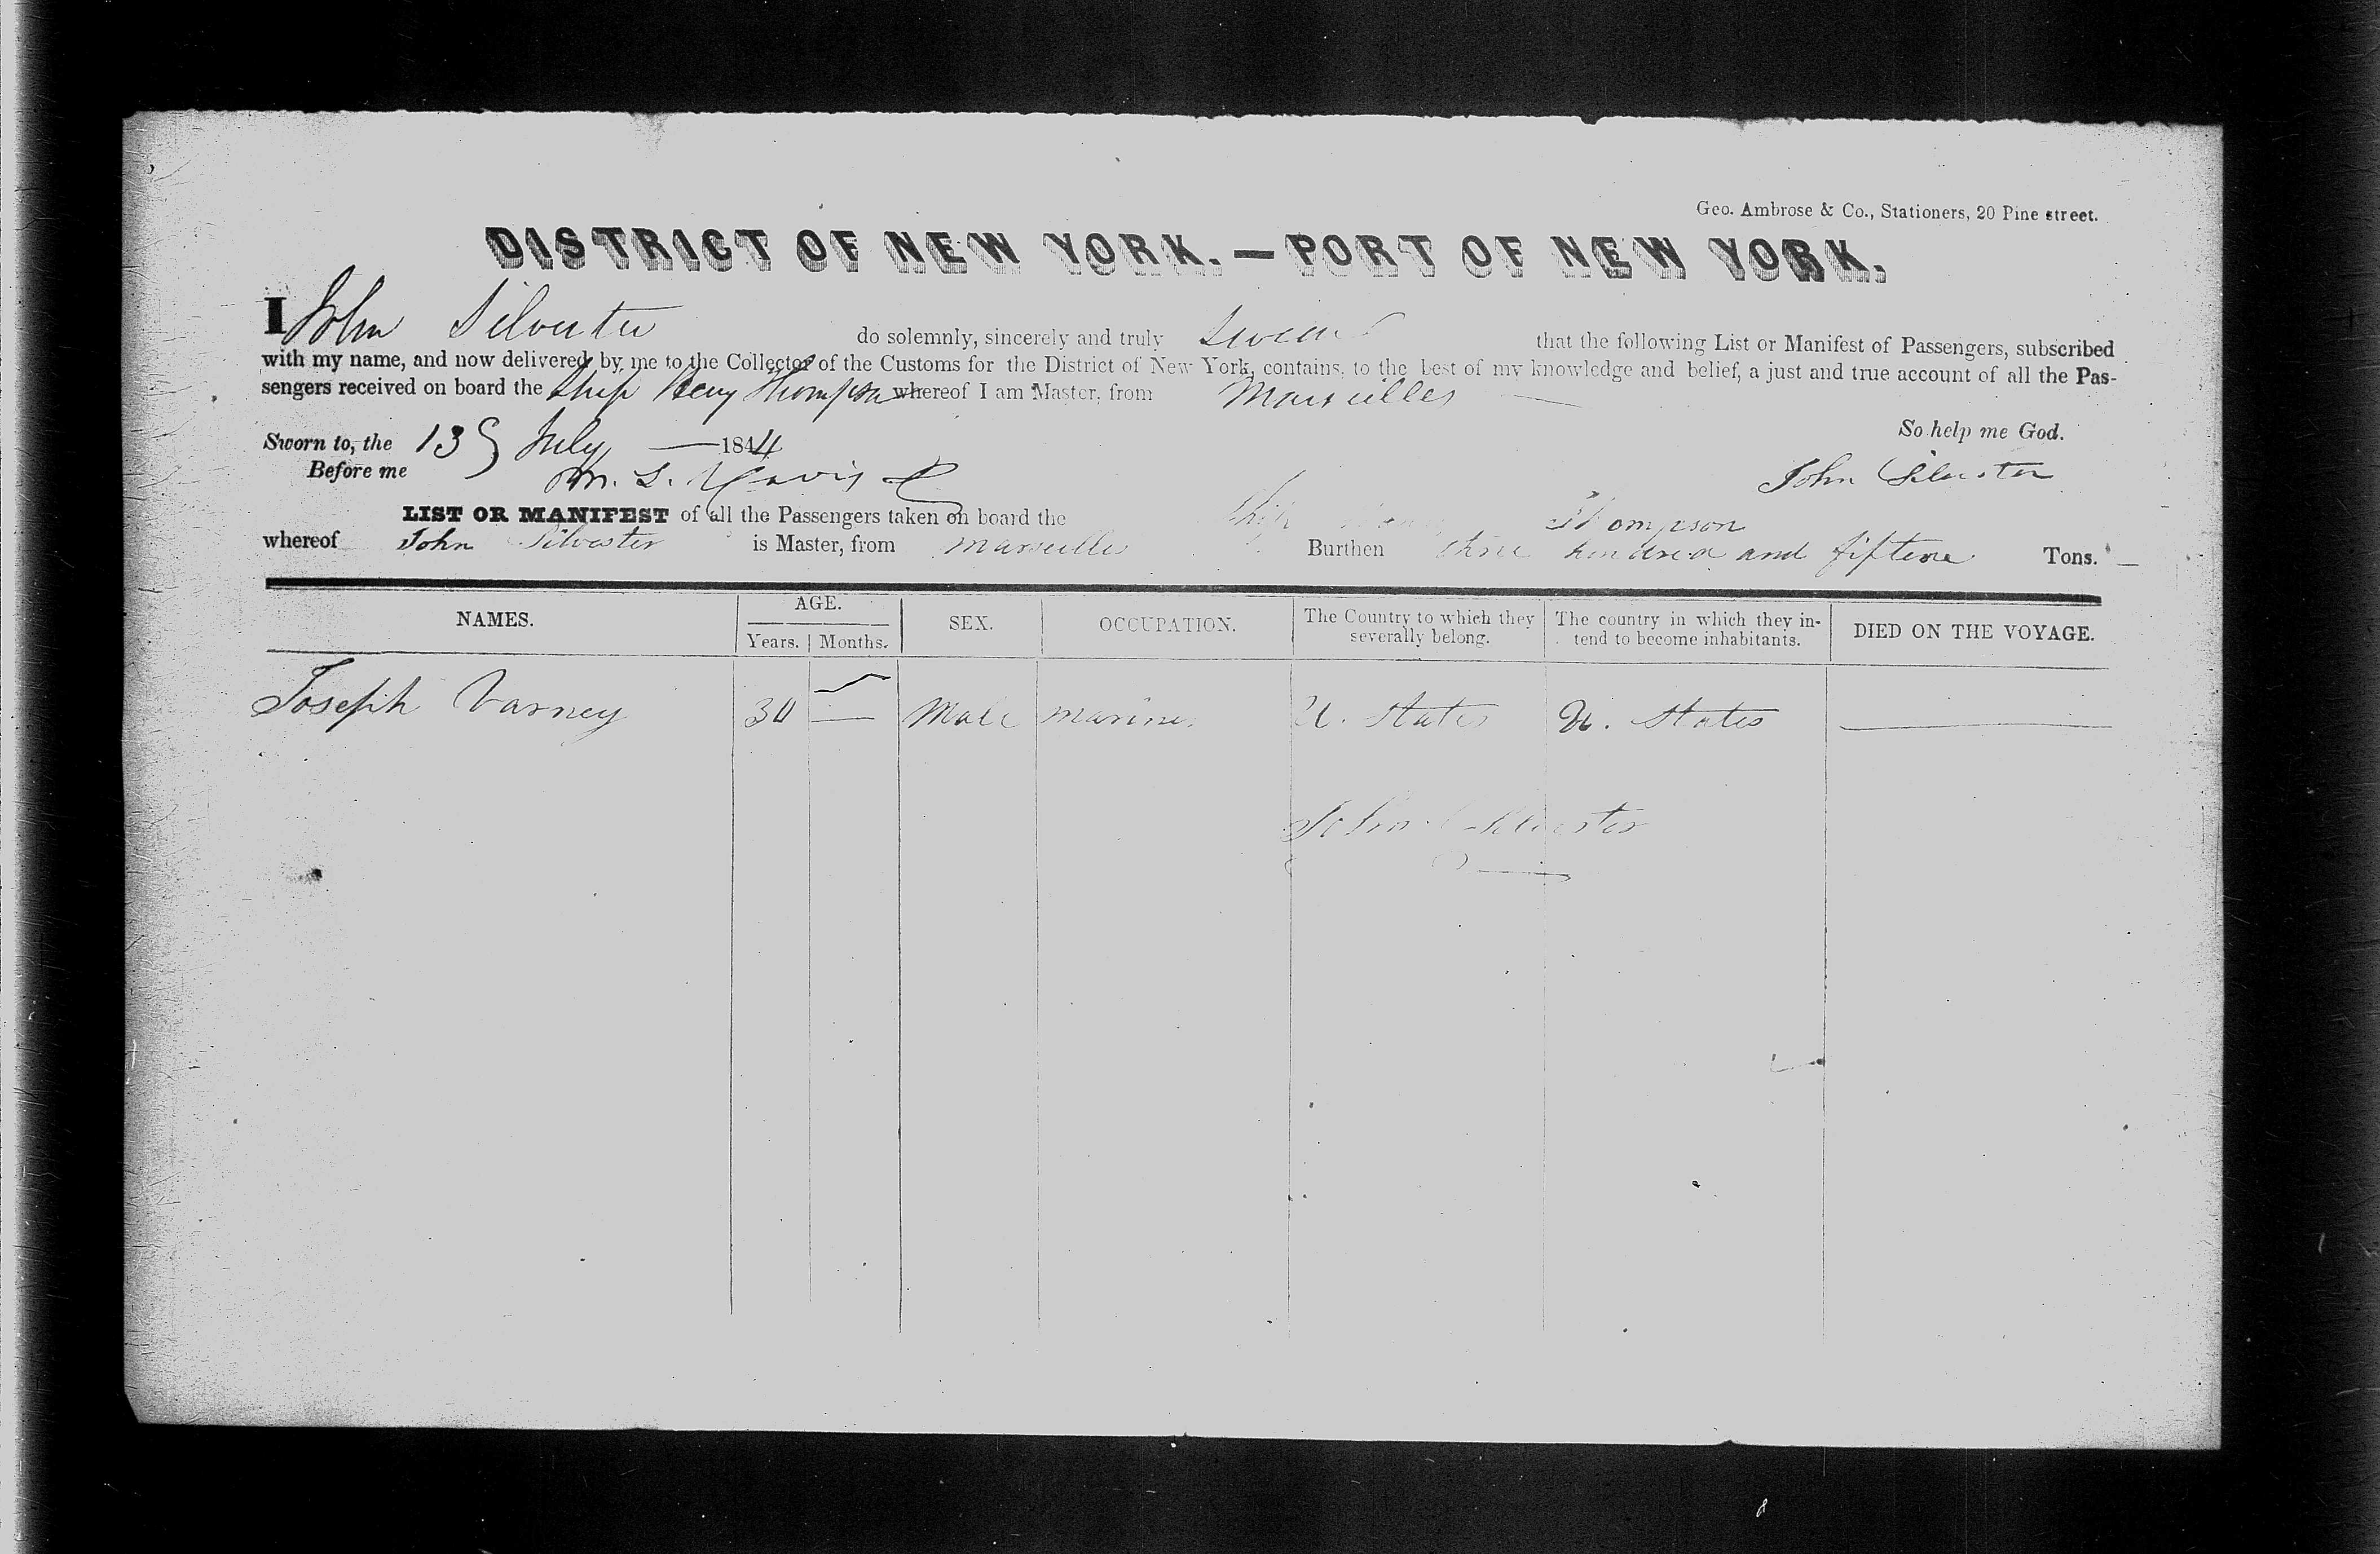 Geo. Ambrose & Co., Stationers, 20 Pine street.
DISTRICT OF NEW YORK.—PORT OF NEW YORK.
I John Silvester do solemnly, sincerely and truly Swear that the following List or Manifest of Passengers, subscribed
with my name, and now delivered by me to the Collector of the Customs for the District of New York, contains, to the best of my knowledge and belief, a just and true account of all the Pas-
sengers received on board the Ship Henry Thompson whereof I am Master, from Marseilles
So help me God.
Sworn to, the 13 July 1844
Before me M. L. Davis
John Silvester
LIST OR MANIFEST of all the Passengers taken on board the Ship Thompson
whereof John Silvester is Master, from Marseilles Burthen three hundred and fifteen Tons.
NAMES. AGE. SEX. OCCUPATION. The Country to which they severally belong. The country in which they in-tend to become inhabitants. DIED ON THE VOYAGE.
Years. Months.
Joseph Varney 30 — Male mariner U. States U. States —
John Silvester